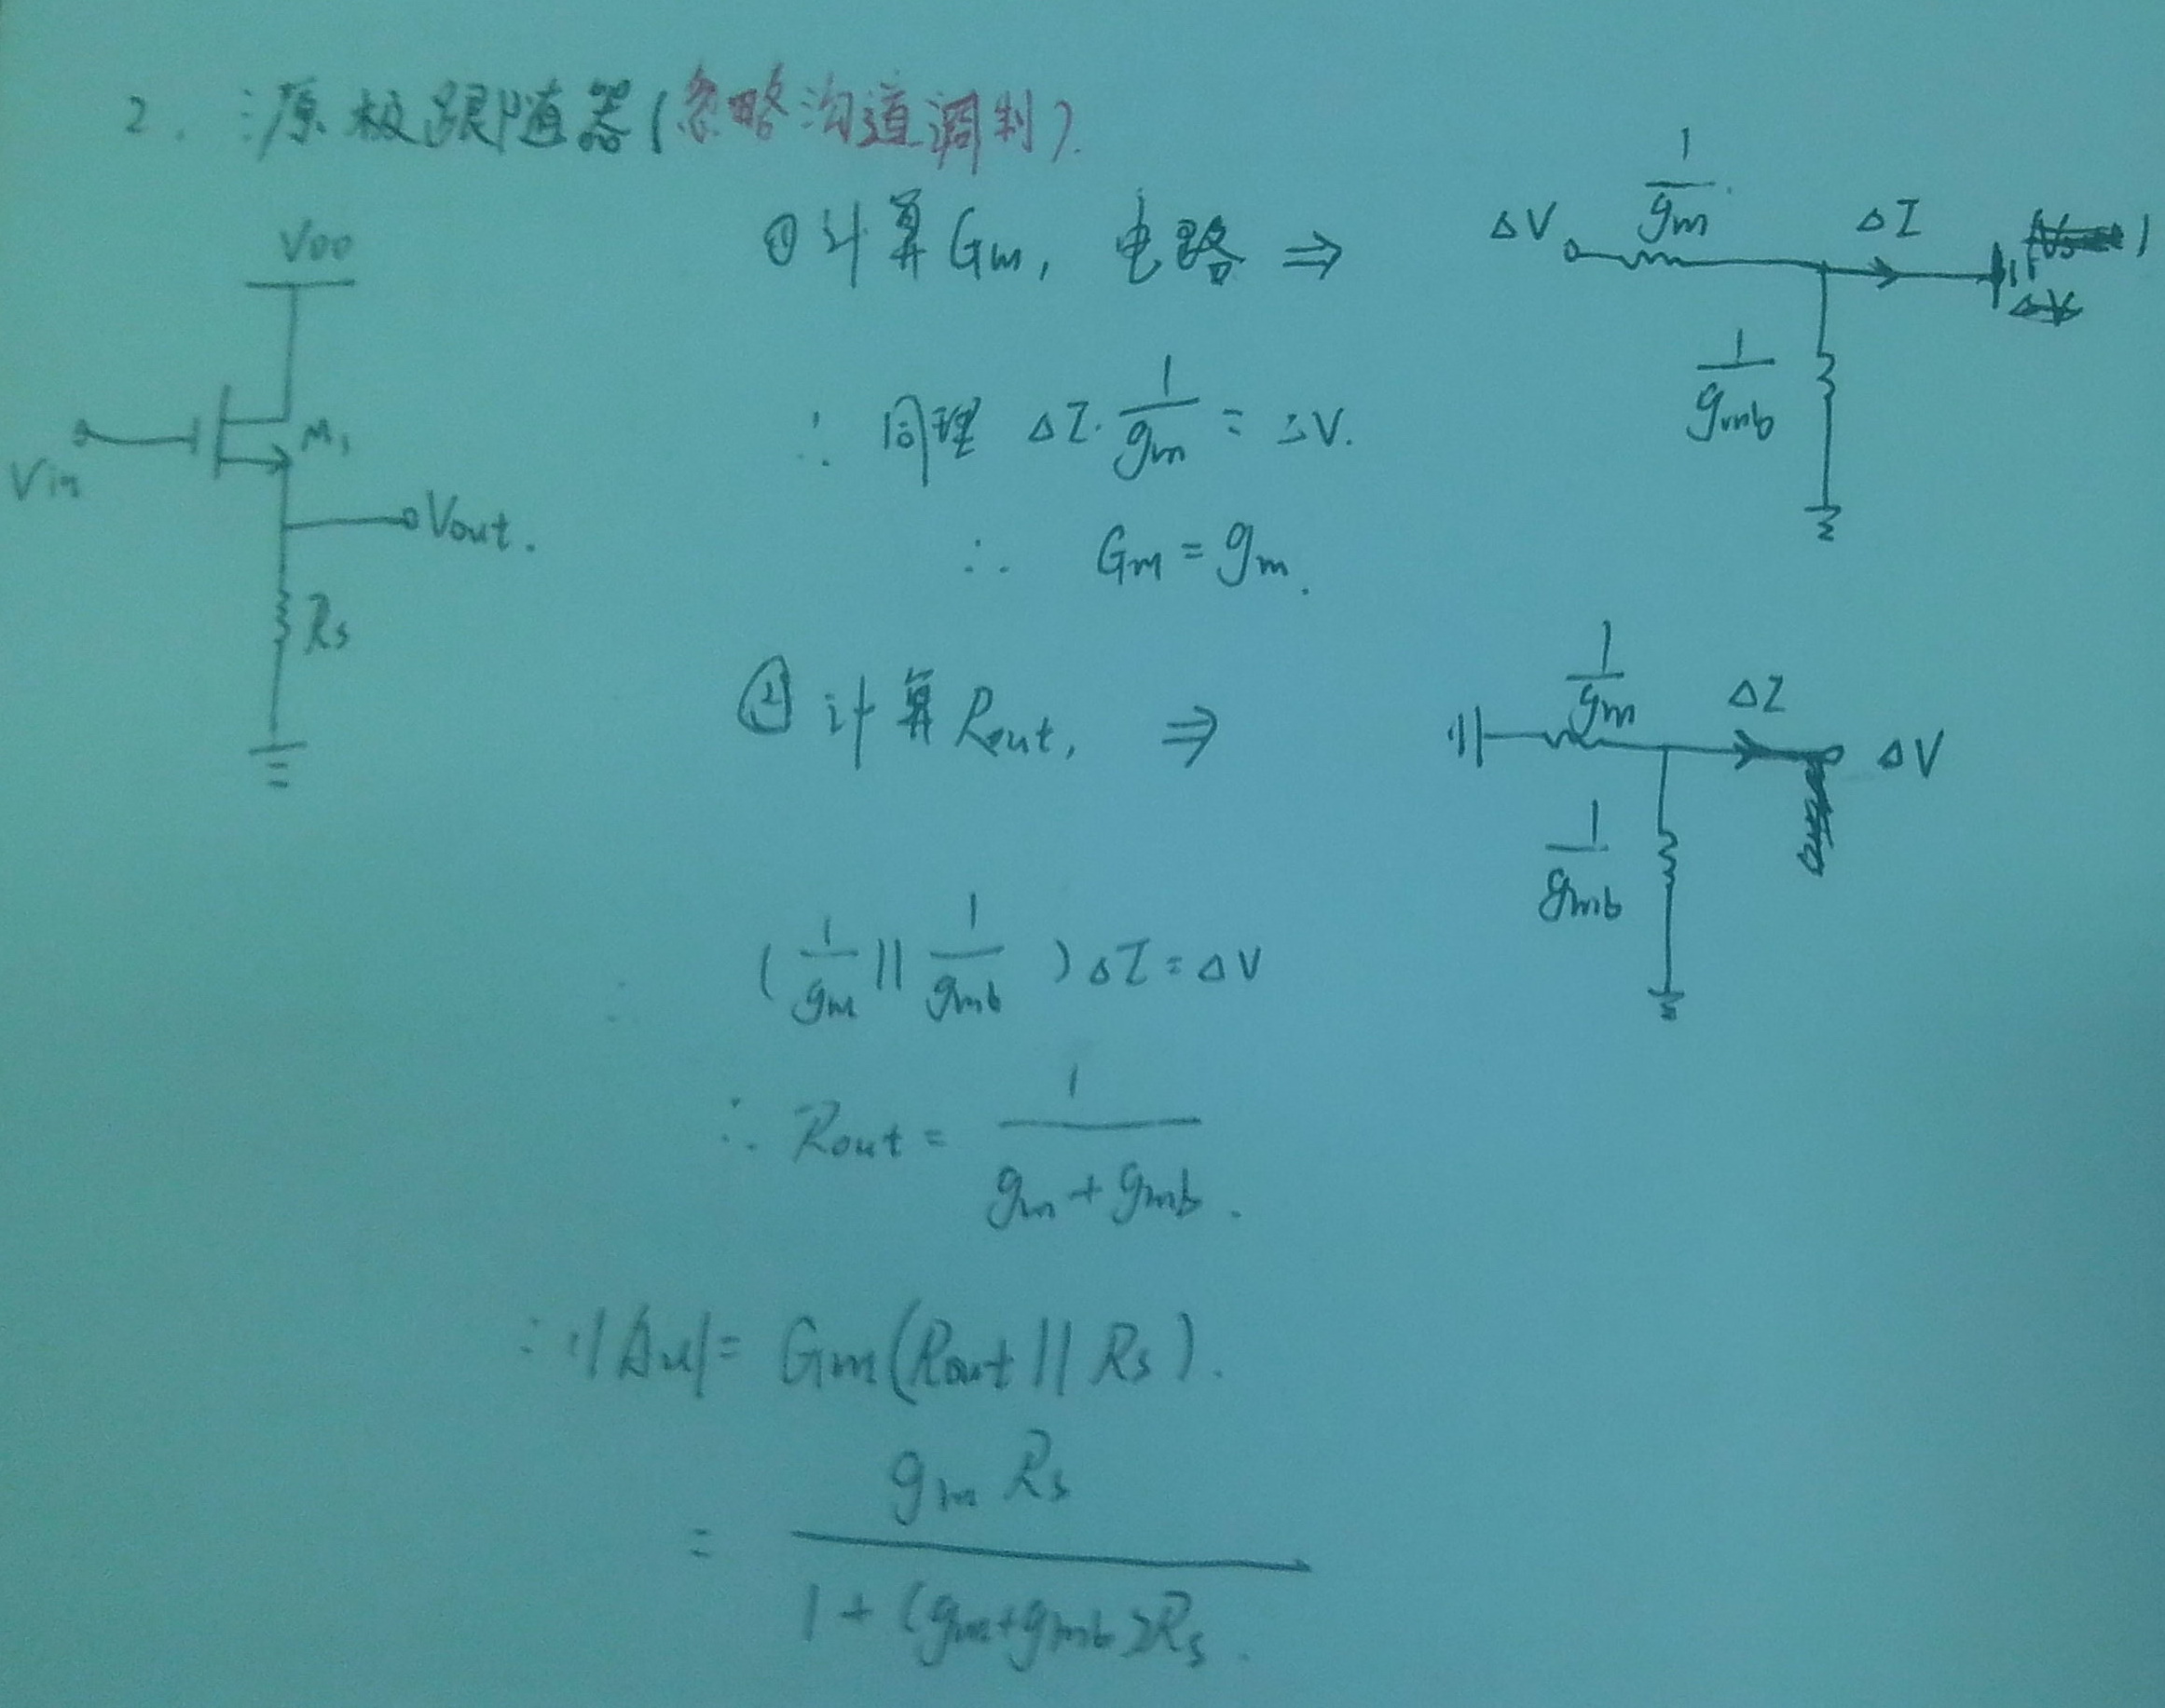 2. 源极跟随器(忽略沟道调制).
VDD
Vin
M1
Vout.
Rs
①计算Gm, 电路 ⇒
ΔV
1/gm
ΔI
1/gmb
∴ 同理 ΔI·1/gm = ΔV.
∴ Gm = gm.
②计算Rout, ⇒
1/gm
ΔI
ΔV
1/gmb
(1/gm || 1/gmb) ΔI = ΔV
∴ Rout = 1/(gm + gmb).
∴ |Au| = Gm(Rout || Rs).
= gm Rs/(1 + (gm+gmb)Rs).